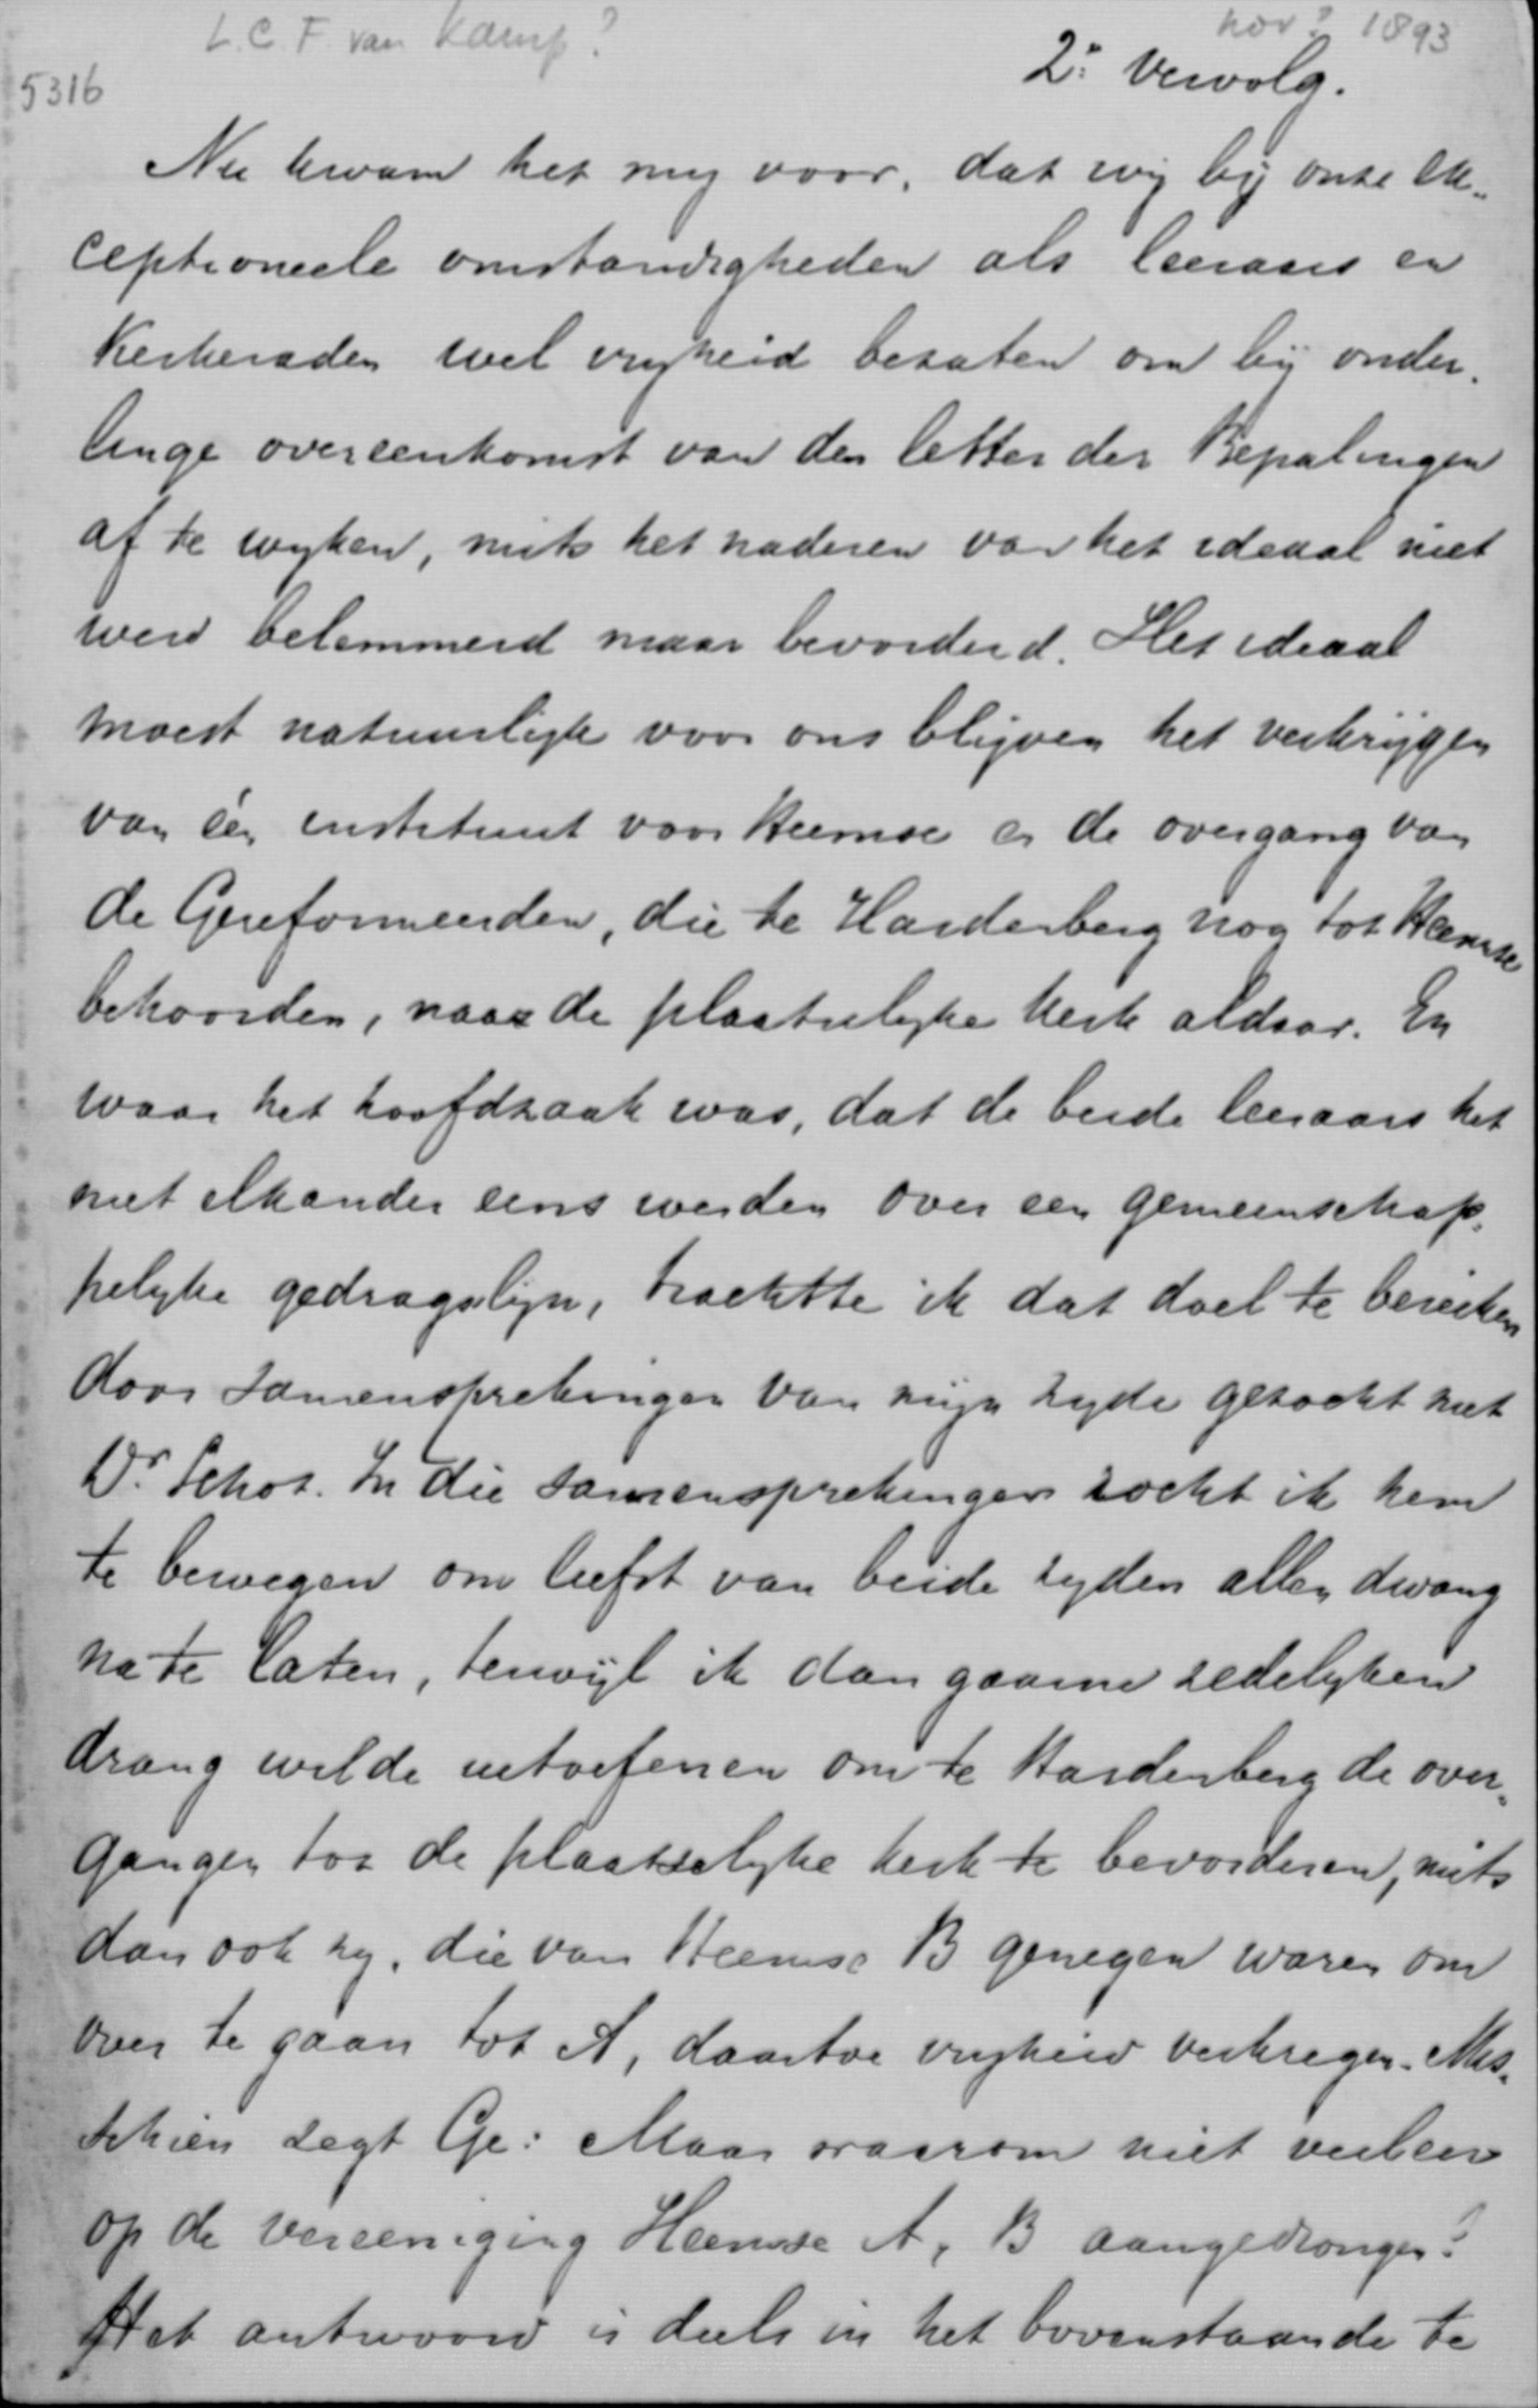 L.C.F. van Kamp?
nov? 1893
5316
2e Vervolg.
Nu kwam het my voor, dat wij bij onze ex-
ceptioneele omstandigheden als leeraars en
Kerkeraden wel vryheid bezaten om bij onder-
linge overeenkomst van den letter der Bepalingen
af te wyken, mits het naderen van het ideaal niet
werd belemmerd maar bevorderd. Het ideaal
moest natuurlijk voor ons blijven het verkrijgen
van één instituut voor Heemse en de overgang van
de Gereformeerden, die te Hardenberg nog tot Heemse
behoorden, naar de plaatselyke kerk aldaar. En
waar het hoofdzaak was, dat de beide leeraars het
met elkander eens werden over een gemeenschap-
pelyke gedragslijn, trachtte ik dat doel te bereiken
door samensprekingen van mijn zyde gezocht met
Dr. Schot. In die samensprekingen zocht ik hem
te bewegen om liefst van beide zyden allen dwang
na te laten, terwijl ik dan gaarne zedelyken
drang wilde uitoefenen om te Hardenberg de over-
gangen tot de plaatselyke kerk te bevorderen, mits
dan ook zy, die van Heemse B genegen waren om
over te gaan tot A, daartoe vryheid verkregen. Mis-
schien zegt Ge: Maar waarom niet veeleer
op de vereeniging Heemse A, B aangedrongen?
Het antwoord is deels in het bovenstaande te